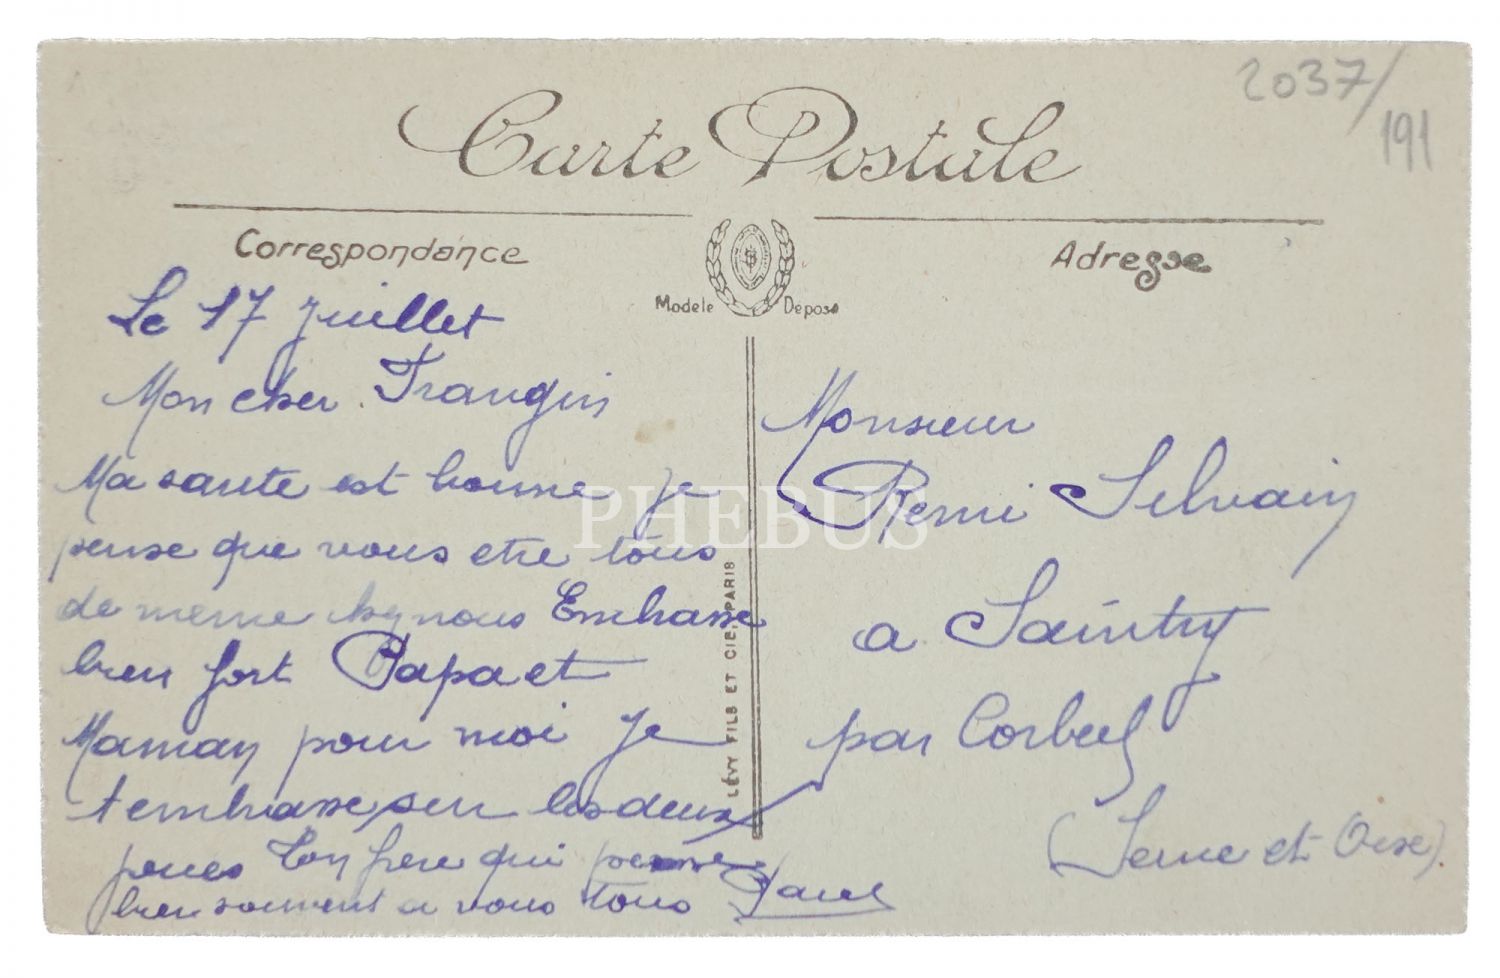 2037/
191
Carte Postale
Correspondance
Adresse
Modele Deposé
Le 17 Juillet
Mon cher Frangin
Ma sante est bonne je
pense que vous etre tous
de meme chez nous Embrasse
bien fort Papa et
Maman pour moi Je
t embrasse sur les deux
joues Ton frere qui pense
bien souvent a vous tous Paul
LÉVY FILS ET CIE, PARIS
Monsieur
Remi Silvain
a Saintry
par Corbeil
(Seine et Oise).
PHEBUS